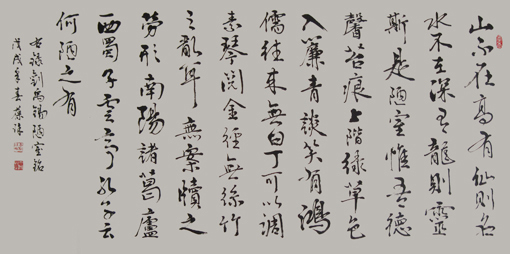 山不在高有仙則名
水不在深有龍則靈
斯是陋室惟吾德
馨苔痕上階綠草色
入簾青談笑有鴻
儒往來無白丁可以調
素琴閱金經無絲竹
之亂耳無案牘之
勞形南陽諸葛廬
西蜀子雲亭孔子云
何陋之有
右錄劉禹錫陋室銘
戊戌年春